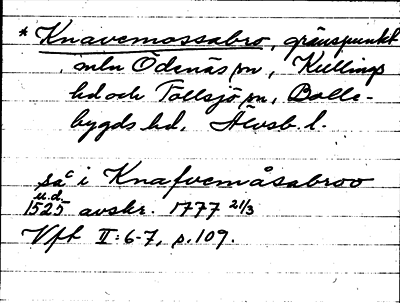 * Knavemossabro, gränspunkt
mln Ödenäs sn, Kullings
hd och Tollsjö sn, Bolle-
bygds hd, Älvsb. l.
så i Knafvemåsabroo
u.d.
1525 avskr. 1777 21/3
Vft II:6-7, s. 109.